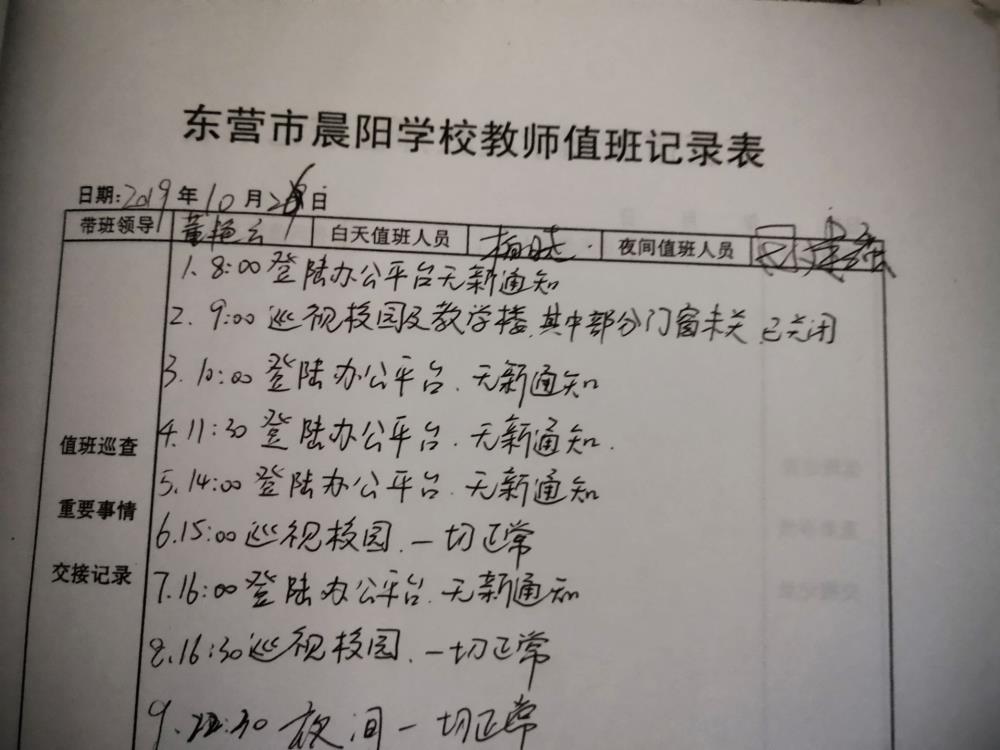 东营市晨阳学校教师值班记录表
日期:2019年10月2日
带班领导 董艳云 白天值班人员 夜间值班人员
1. 8:00 登陆办公平台无新通知
2. 9:00 巡视校园及教学楼,其中部分门窗未关 已关闭
3. 10:00 登陆办公平台.无新通知
值班巡查
4. 11:30 登陆办公平台.无新通知.
重要事情
5. 14:00 登陆办公平台.无新通知
6. 15:00 巡视校园.一切正常
交接记录
7. 16:00 登陆办公平台.无新通知
8. 16:30 巡视校园.一切正常
9. 22:30 夜间一切正常